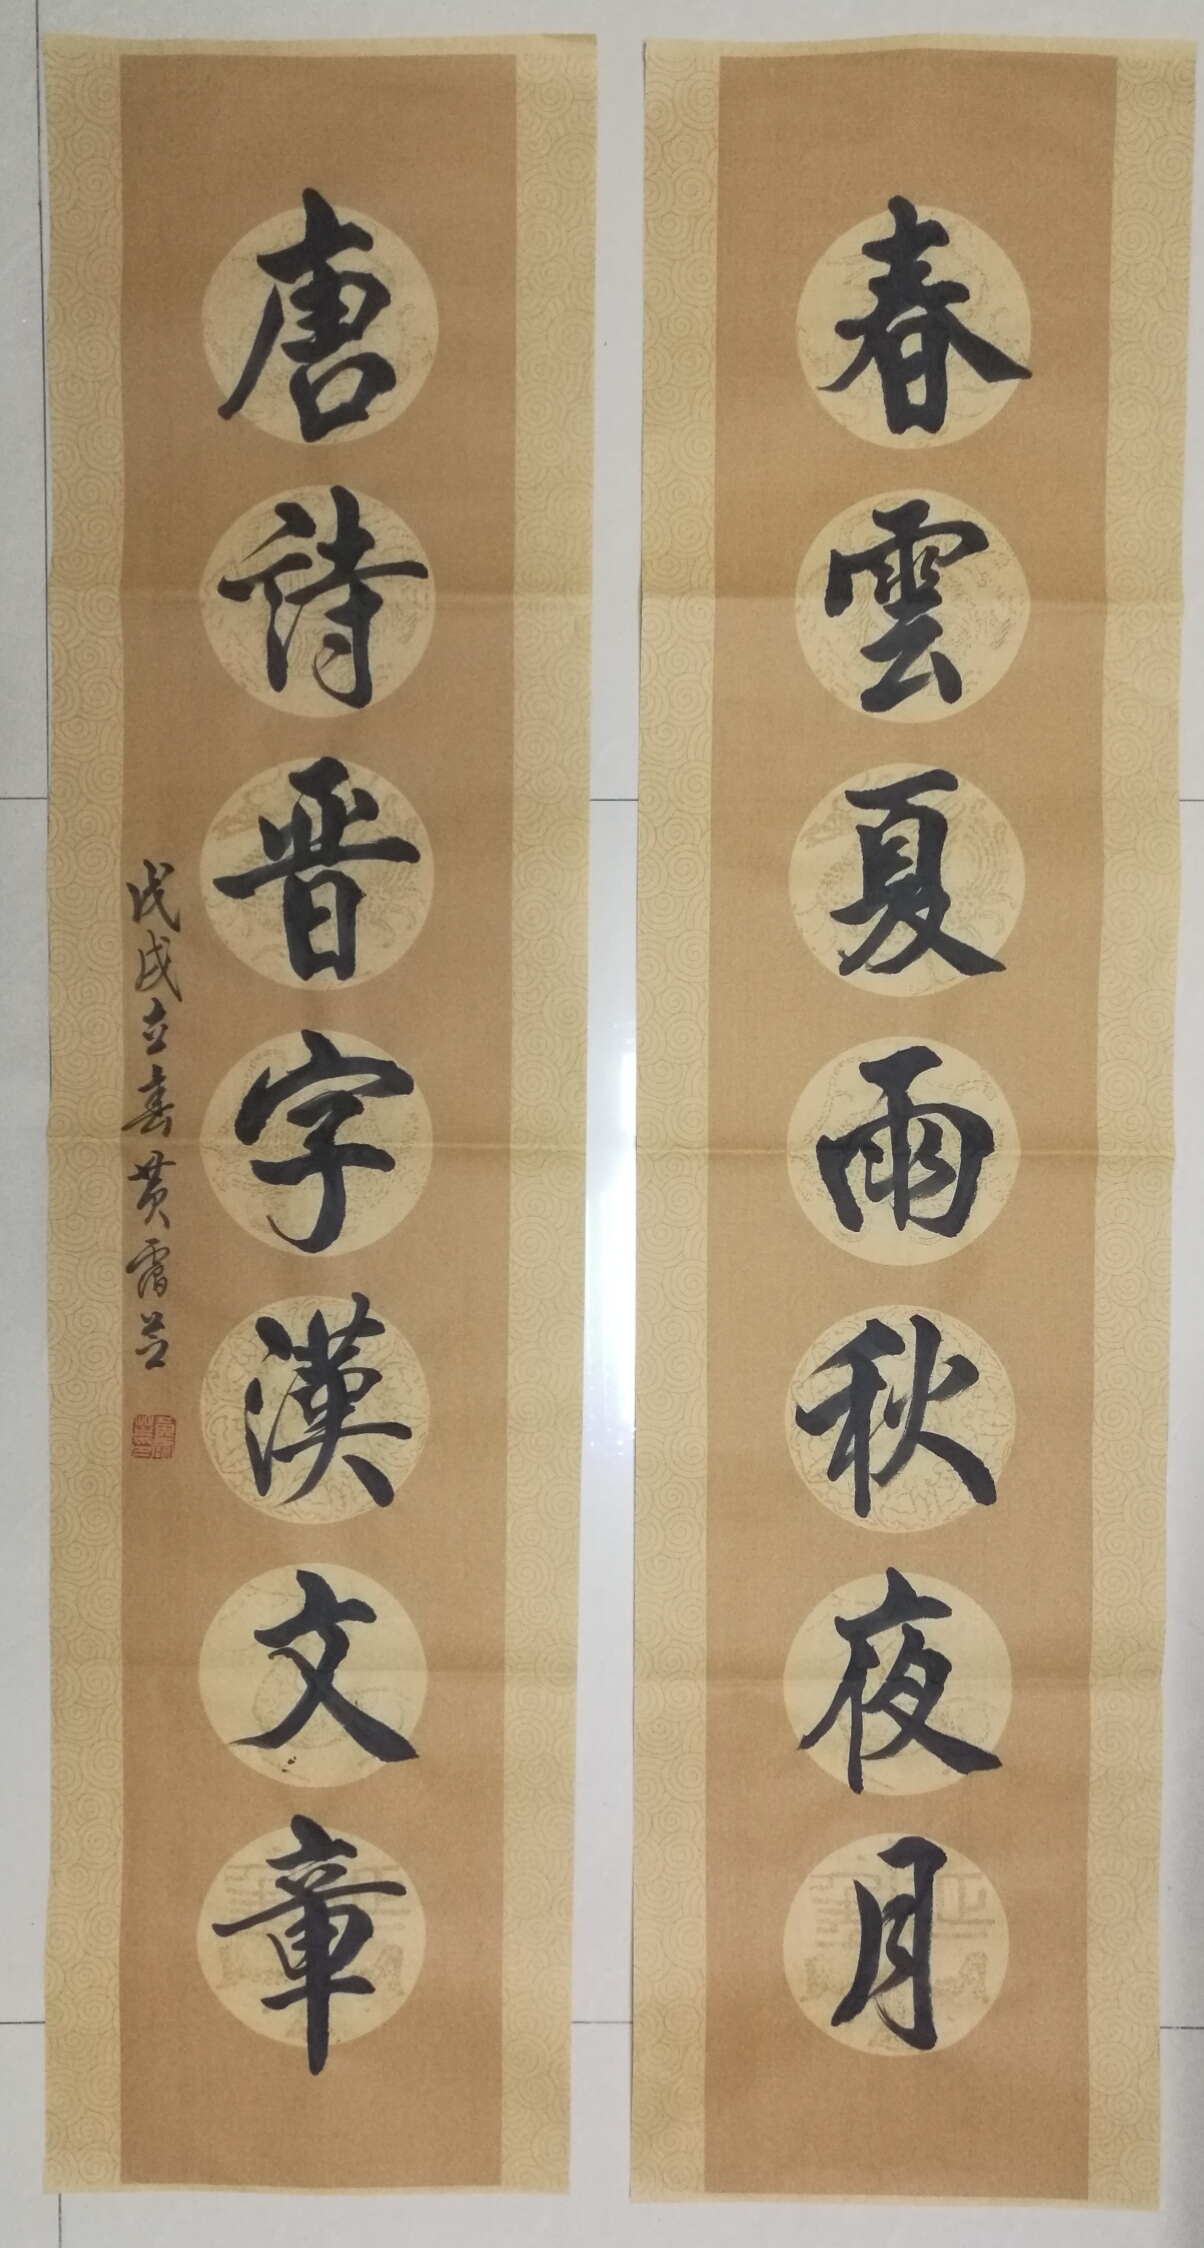 春雲夏雨秋夜月
唐詩晋字漢文章
戊戌立春黄霑書